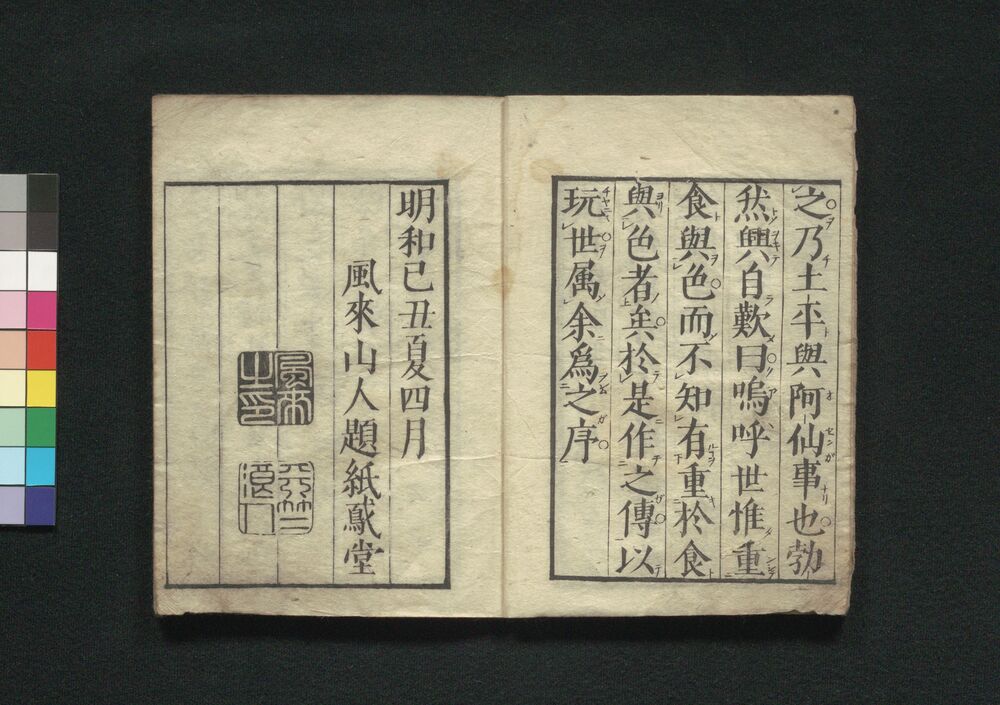 之乃土平與阿仙事也勃
然興自歎曰嗚呼世惟重
食與色而不知有重於食
與色者矣於是作之傳以
玩世属余爲之序
明和己丑夏四月
風來山人題紙鳶堂
風來之印
天竺浪人